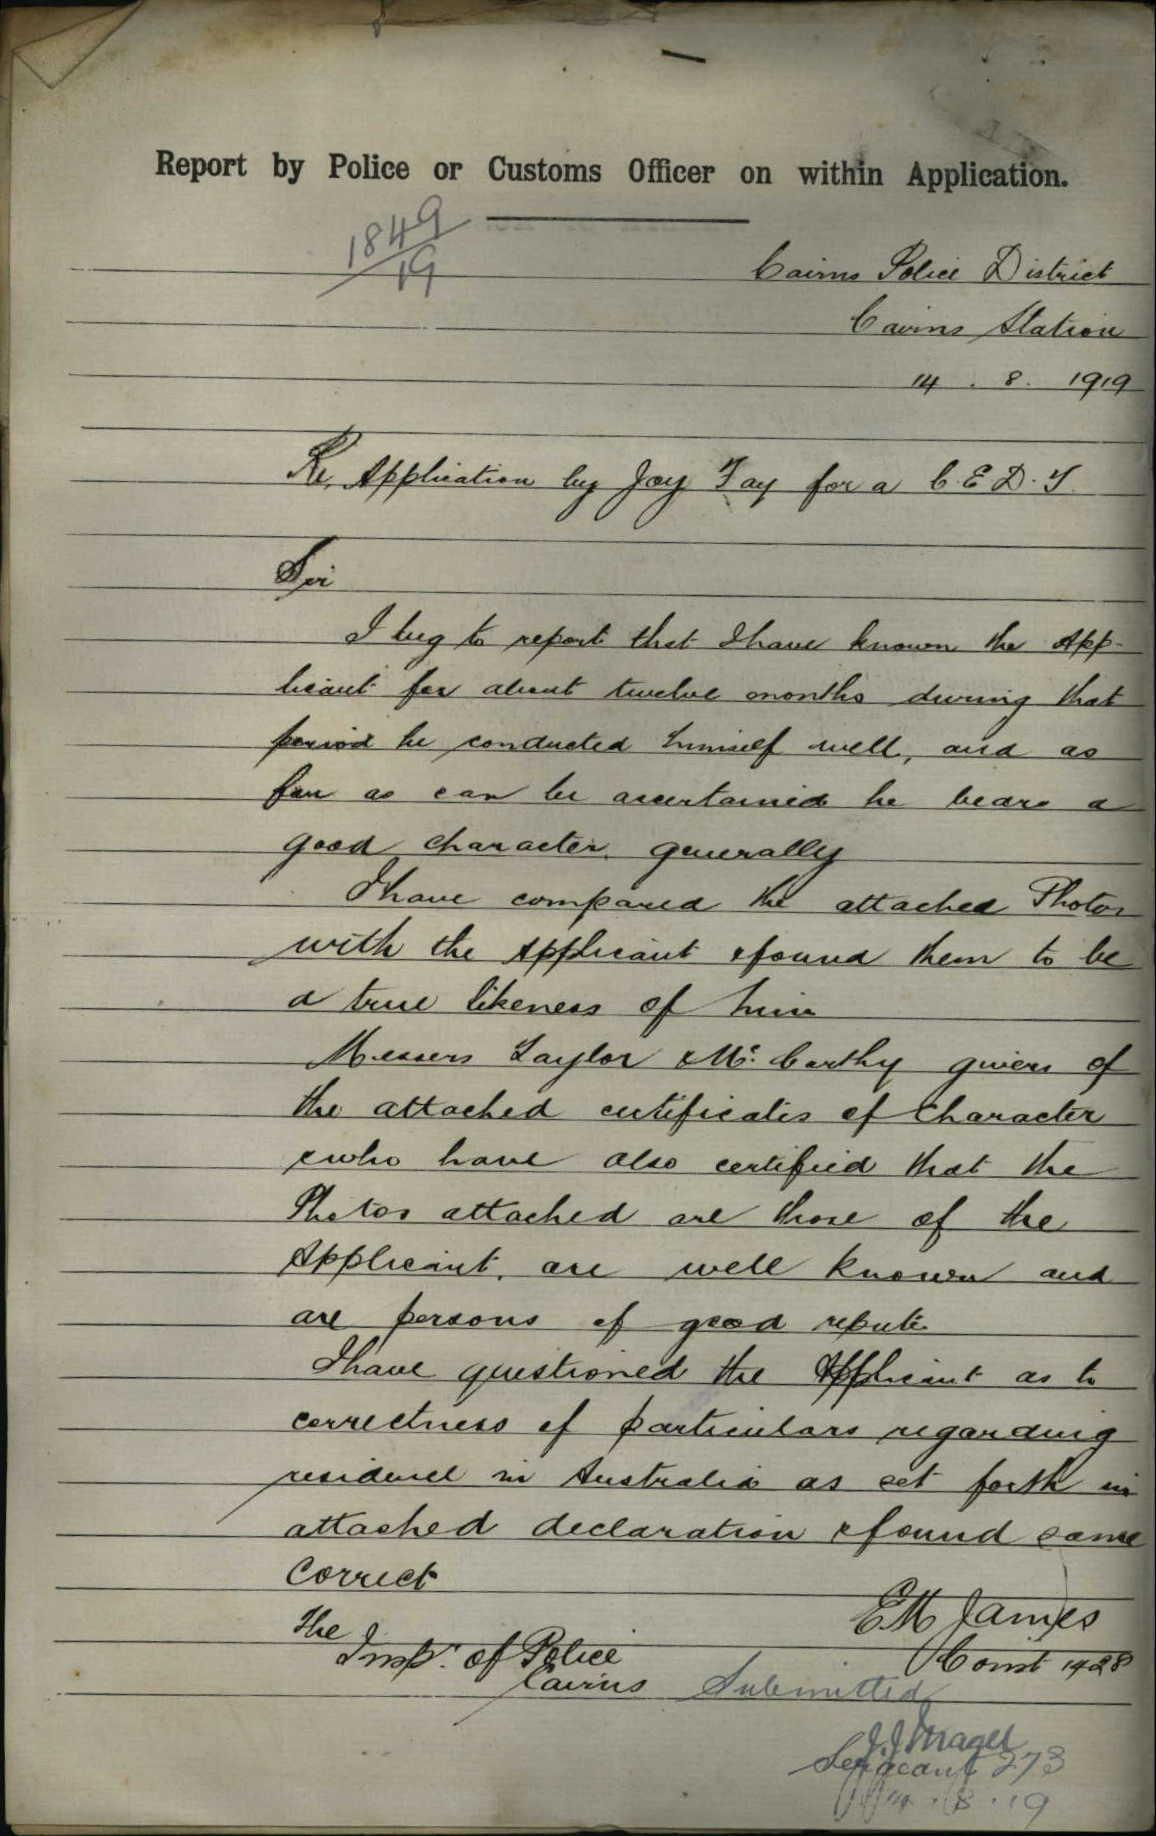 Report by Police or Customs Officer on within Application.
1849
19
Cairns Police District
Cairns Station
14 . 8 . 1919
Re, Application by Joy Fay for a C.E.D.T.
Sir
I beg to report that I have known the App-
licant for about twelve months during that
period he conducted himself well, and as
far as can be ascertained he bears a
good character. generally
I have compared the attached Photos
with the Applicant & found them to be
a true likeness of him
Messers Taylor & Mc. Carthy givers of
the attached certificates of Character
& who have also certified that the
Photos attached are those of the
Applicant. are well known and
are persons of good repute
I have questioned the Applicant as to
correctness of particulars regarding
residence in Australia as set forth in
attached declaration & found same
Correct
EM James
Const 1428
The
Inspr. of Police
Cairns
Submitted
Sergeant 273
14 . 8 . 19